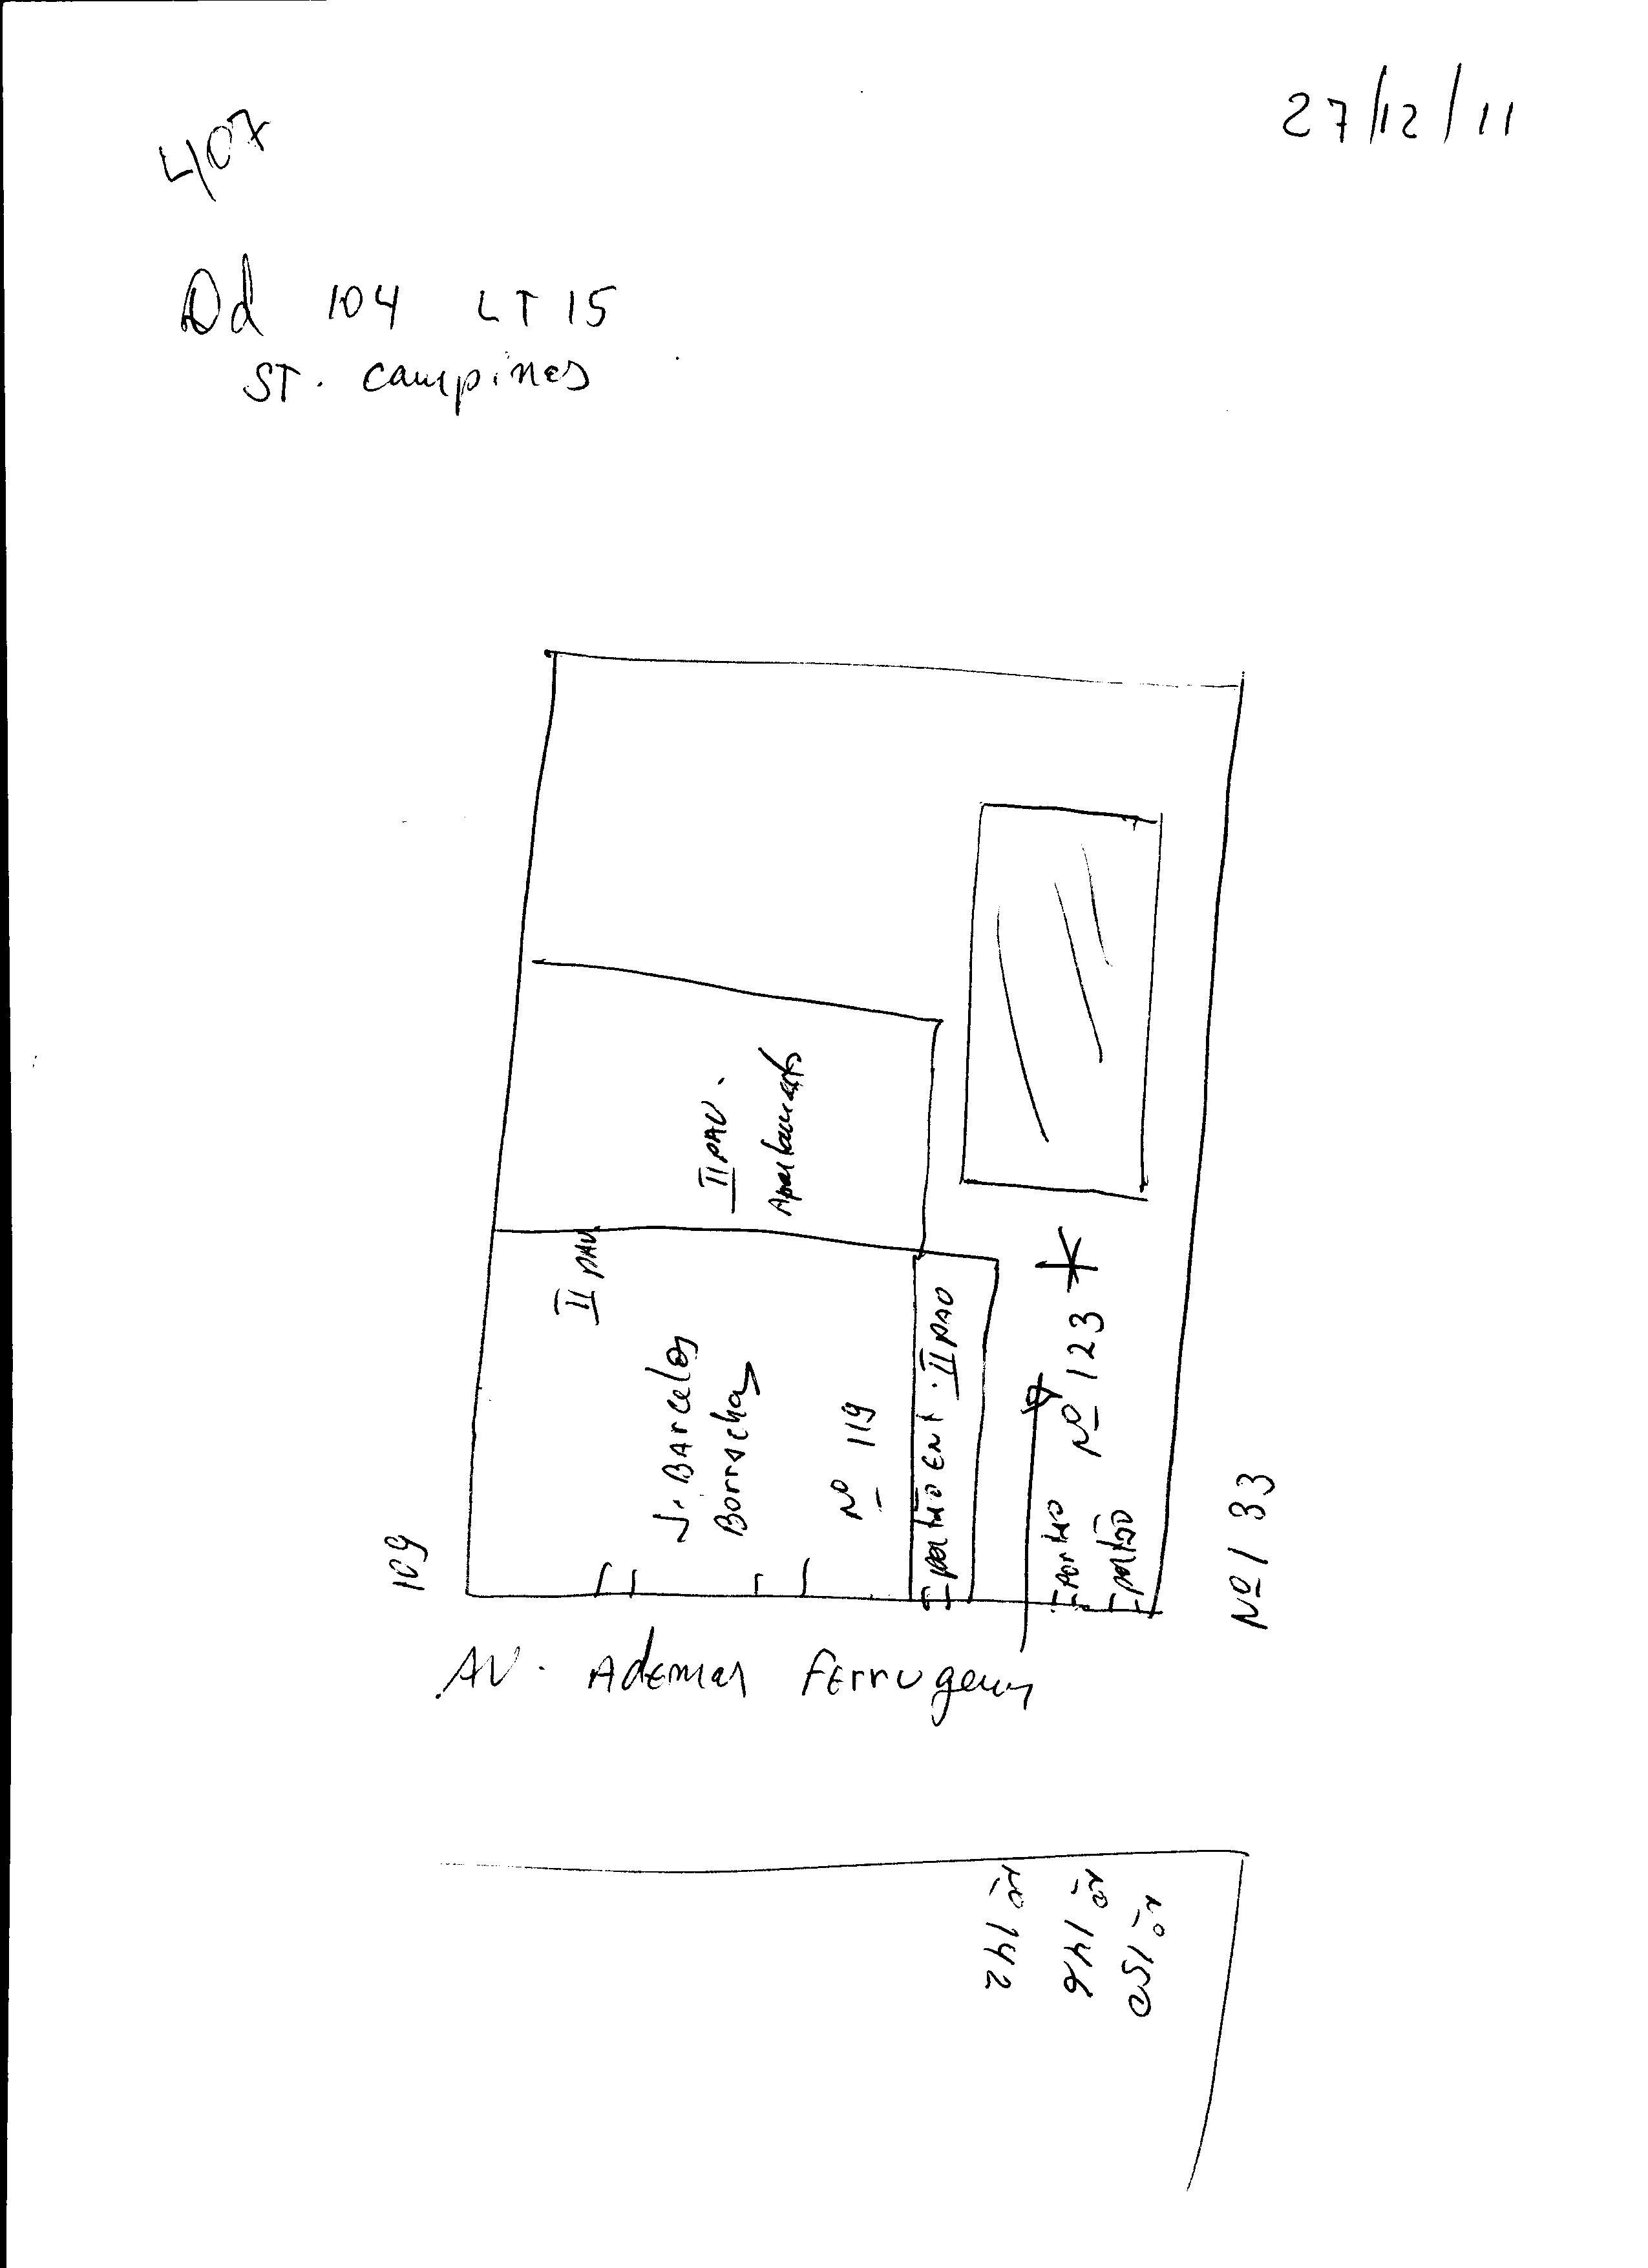 27/12/11
407
Qd 104 LT 15
ST. Campinas
II PAV.
Apartamento
II PAV
J. Barcelos
Borracha
Nº 119
portão ENT. II PAV
Nº 123
portão
portão
109
Nº 133
AV. Ademar Ferrugem
Nº 142
Nº 146
Nº 150